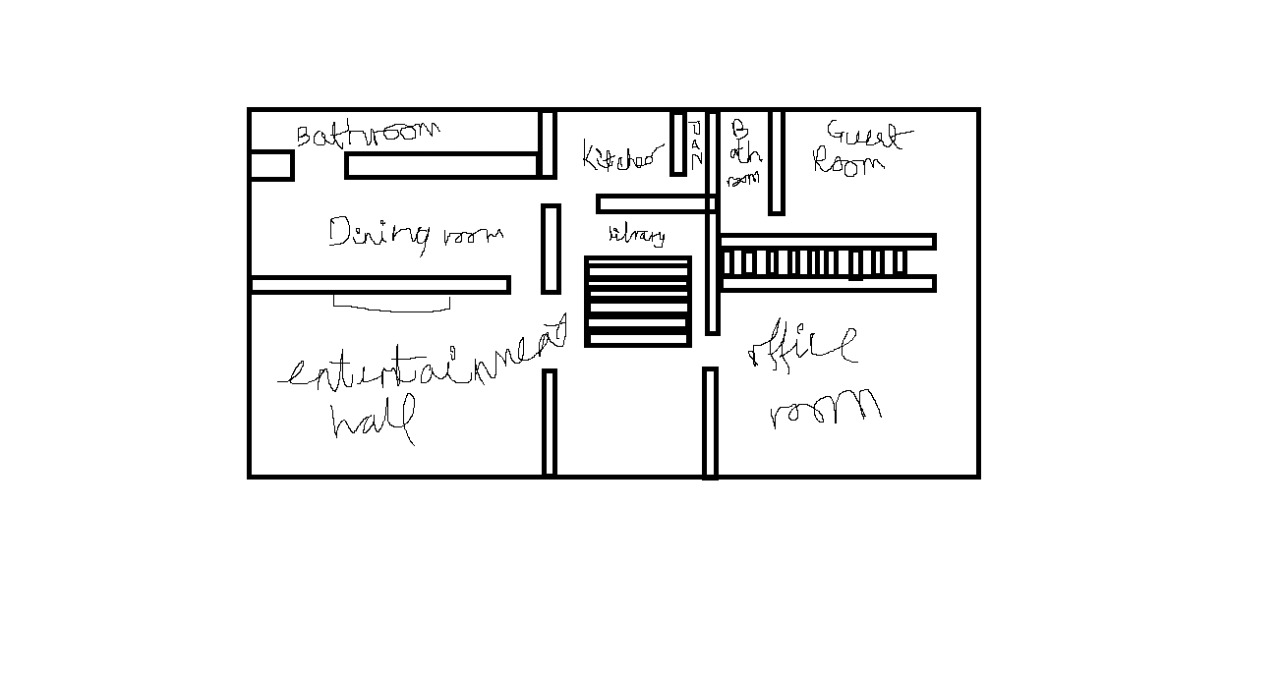 Bathroom
Kitchen
PAN
B
ath
room
Guest
Room
Dining room
library
entertainment
hall
office
room